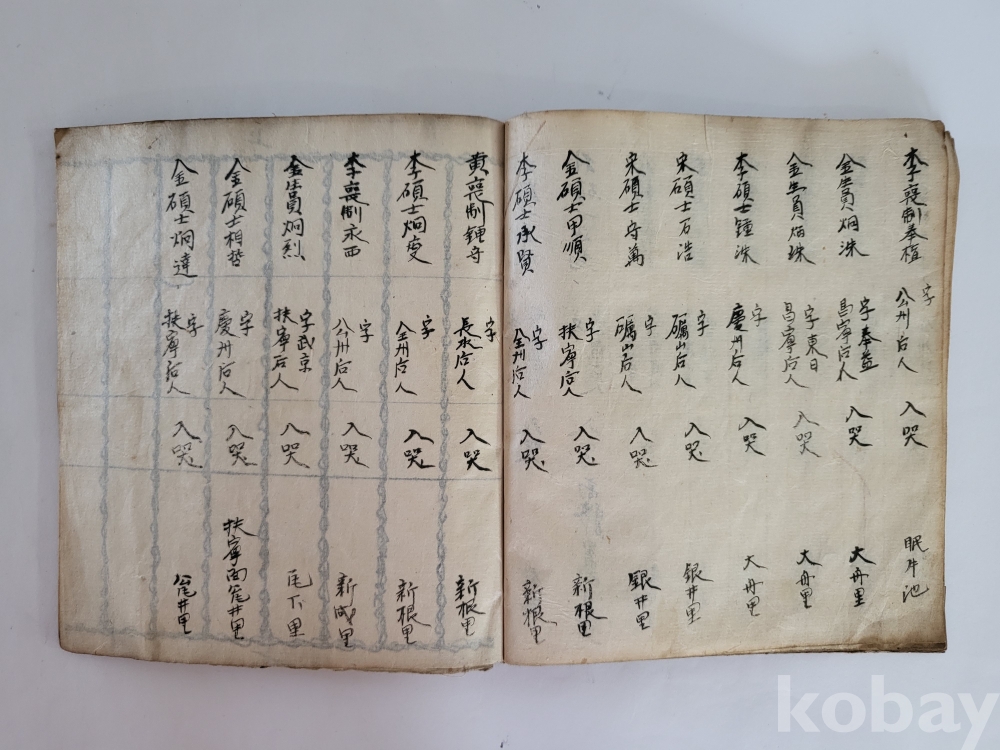 李喪制春植 字 公州后人 入哭 眠牛池
金生員炯洙 字奉益 昌寧后人 入哭 大舟里
金生員炳珠 字東日 昌寧后人 入哭 大舟里
李碩士鍾洙 字 慶州后人 入哭 大舟里
宋碩士石浩 字 礪山后人 入哭 銀井里
宋碩士守萬 字 礪山后人 入哭 銀井里
金碩士甲順 字 扶寧后人 入哭 新根里
李碩士承賢 字 全州后人 入哭 新根里
黃喪制鍾守 字 長水后人 入哭 新根里
李碩士炯 字 全州后人 入哭 新根里
李喪制永西 字 公州后人 入哭 新成里
金生員炯烈 字武京 扶寧后人 入哭 尾下里
金碩士相哲 字 慶州后人 入哭 扶寧面 井里
金碩士炯達 字 扶寧后人 入哭 井里
kobay